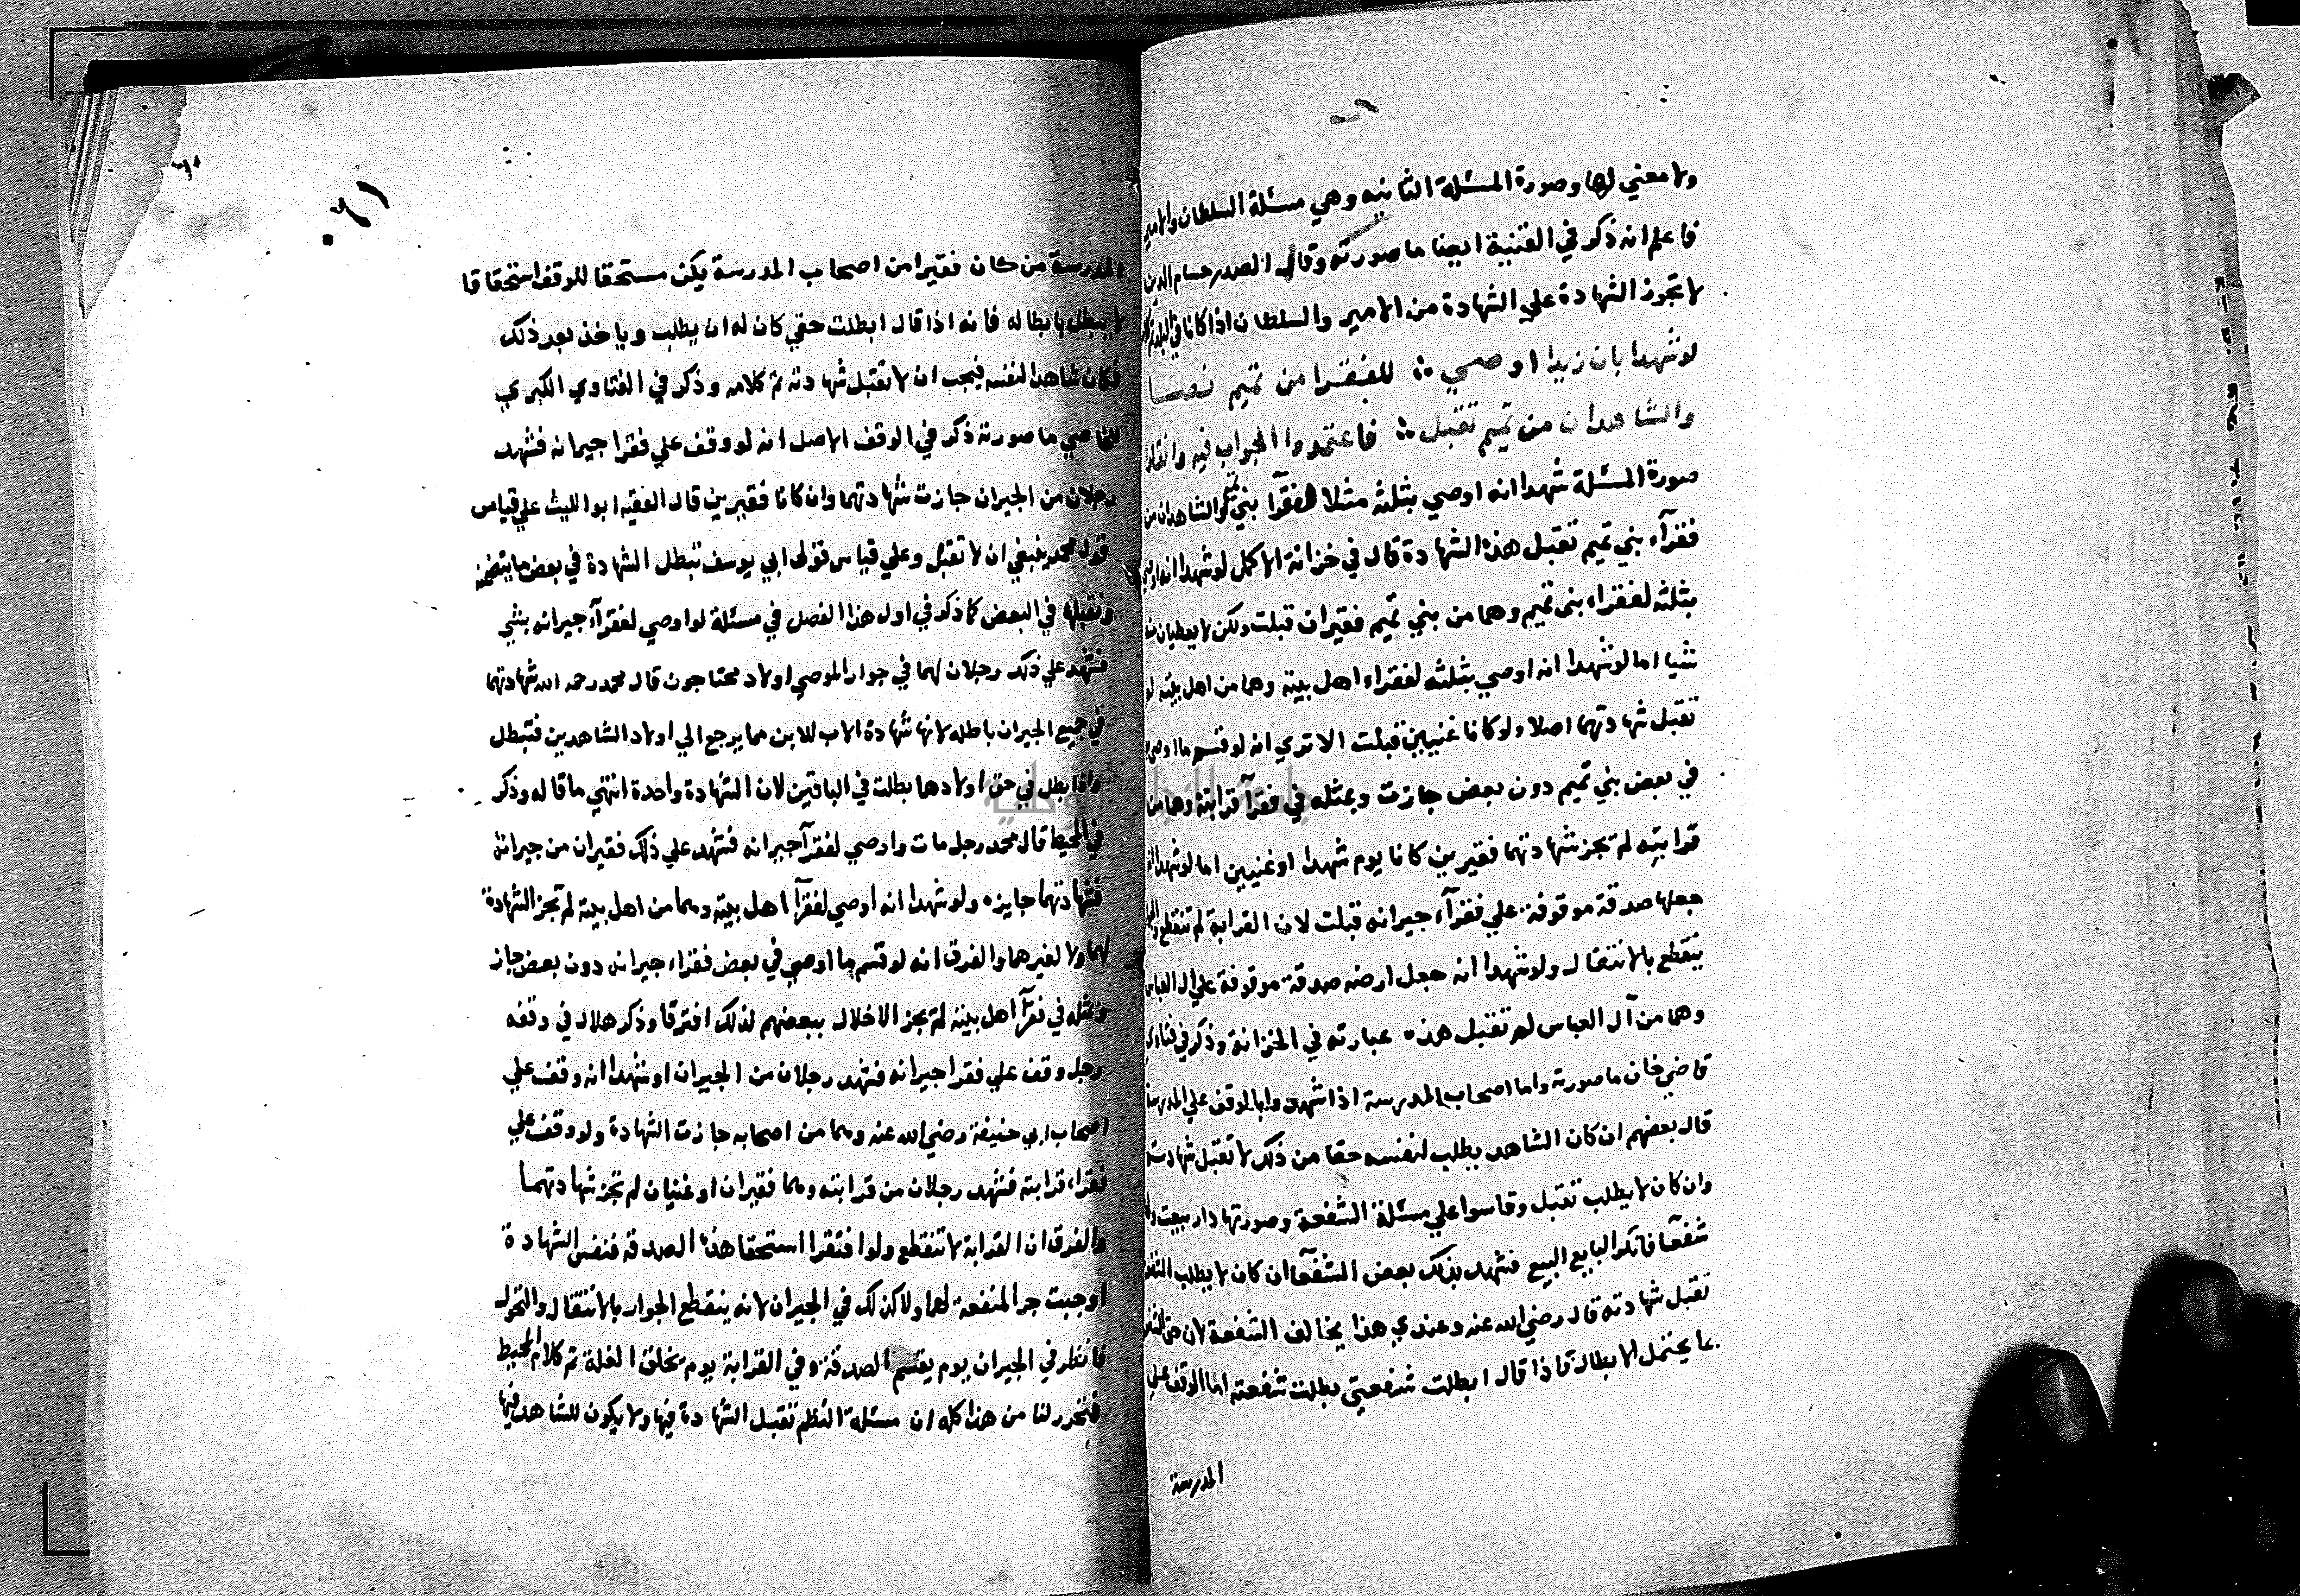 ولا معني لها وصورة المسئلة الثانيه وهي مسئلة السلطان والامير
فاعلم انه ذكر في القنية ايضا ما صورته وقال الصدر حسام الدين
لا تجوز الشهادة علي الشهادة من الامير والسلطان اذا كانا في البلد
لو شهدا بان زيدا اوصي ؞ للفقرا من تميم نصا
والشاهدان من تميم تقبل ؞ فاعتمدوا الجواب فيه
صورة المسئلة شهدا انه اوصي بثلثه مثلا لفقرآ بني تميم والشاهدان من
فقرآء بني تميم تقبل هذه الشهادة قال في خزانة الاكمل لو شهدا انه اوصي
بثلثه لفقراء بني تميم وهما من بني تميم فقيران قبلت ولكن لا يعطيان منه
شيا اما لو شهدا انه اوصي بثلثه لفقراء اهل بيته وهما من اهل بيته لم
تقبل شهادتهما اصلا ولو كانا غنيين قبلت الا تري انه لو قسم ما اوصي
في بعض بني تميم دون بعض جازت وبمثله في فقرآ قرابته وهما من
قرابته لم تجز شهادتهما فقيرين كانا يوم شهدا او غنيين اما لو شهدا انه
جعلها صدقة موقوفة علي فقرآء جيرانه قبلت لان القرابة لم تنقطع والجوار
ينقطع بالانتقال ولو شهدا انه جعل ارضه صدقة موقوفة علي ال العباس
وهما من آل العباس لم تقبل هذه عبارته في الخزانة وذكر في فتاوي
قاضي خان ما صورته واما اصحاب المدرسة اذا شهدوا بالوقف علي المدرسة
قال بعضهم ان كان الشاهد يطلب لنفسه حقا من ذلك لا تقبل شهادته
وان كان لا يطلب تقبل وقاسوا علي مسئلة الشفعة وصورتها دار بيعت ولها
شفعآ فانكر البايع البيع فشهد بذلك بعض الشفعآ ان كان لا يطلب الشفعة
تقبل شهادته قال رضي الله عنه وعندي هذا يخالف الشفعة لان حق الشفعة
مما يحتمل الابطال فاذا قال ابطلت شفعتي بطلت شفعته اما الوقف علي
المدرسة
المدرسة من كان فقيرا من اصحاب المدرسة يكن مستحقا للوقف استحقاقا
لا يبطل بابطاله فانه اذا قال ابطلت حقي كان له ان يطلب وياخذ بعد ذلك
فكان شاهدا لنفسه فيجب ان لا تقبل شهادته تم كلامه وذكر في الفتاوي الكبري
للخاصي ما صورته ذكر في الوقف الاصل انه لو وقف علي فقرا جيرانه فشهد
رجلان من الجيران جازت شهادتهما وان كانا فقيرين قال الفقيه ابوا الليث علي قياس
قول محمد ينبغي ان لا تقبل وعلي قياس قول ابي يوسف تبطل الشهادة في بعض ما يتضمنه
وتقبل في البعض كما ذكر في اول هذا الفصل في مسئلة لو اوصي لفقرآء جيرانه بشي
فشهد علي ذلك رجلان لهما في جوار الموصي اولاد محتاجون قال محمد رحمه الله شهادتهما
في جميع الجيران باطله لانها شهادة الاب للابن مما يرجع الي اولاد الشاهدين فتبطل
واذا بطل في حق اولادهما بطلت في الباقين لان الشهادة واحدة انتهي ما قاله وذكر
في المحيط قال محمد رجل مات واوصي لفقرآ جيرانه فشهد علي ذلك فقيران من جيرانه
فشهادتهما جايزه ولو شهدا انه اوصي لفقرآ اهل بيته وهما من اهل بيته لم تجز الشهادة
لهما ولا لغيرهما والفرق انه لو قسم ما اوصي في بعض فقراء جيرانه دون بعض جاز
ومثله في فقرآ اهل بيته لم يجز الاخلال ببعضهم لذلك افترقا وذكر هلال في وقفه
رجل وقف علي فقرا جيرانه فشهد رجلان من الجيران او شهدا انه وقف علي
اصحاب ابي حنيفة رضي الله عنه وهما من اصحابه جازت الشهادة ولو وقف علي
فقراء قرابته فشهد رجلان من قرابته وهما فقيران او غنيان لم تجز شهادتهما
والفرق ان القرابة لا تنقطع ولو افتقرا استحقا هذه الصدقه فنفس الشهادة
اوجبت جر المنفعة لهما ولا كذلك في الجيران لانه ينقطع الجوار بالانتقال والتحول
فانظر في الجيران يوم يقسم الصدقة وفي القرابة يوم تخلق الغلة تم كلام المحيط
فتحرر لنا من هذا كله ان مسئلة النظم تقبل الشهادة فيها ولا يكون للشاهد فيها